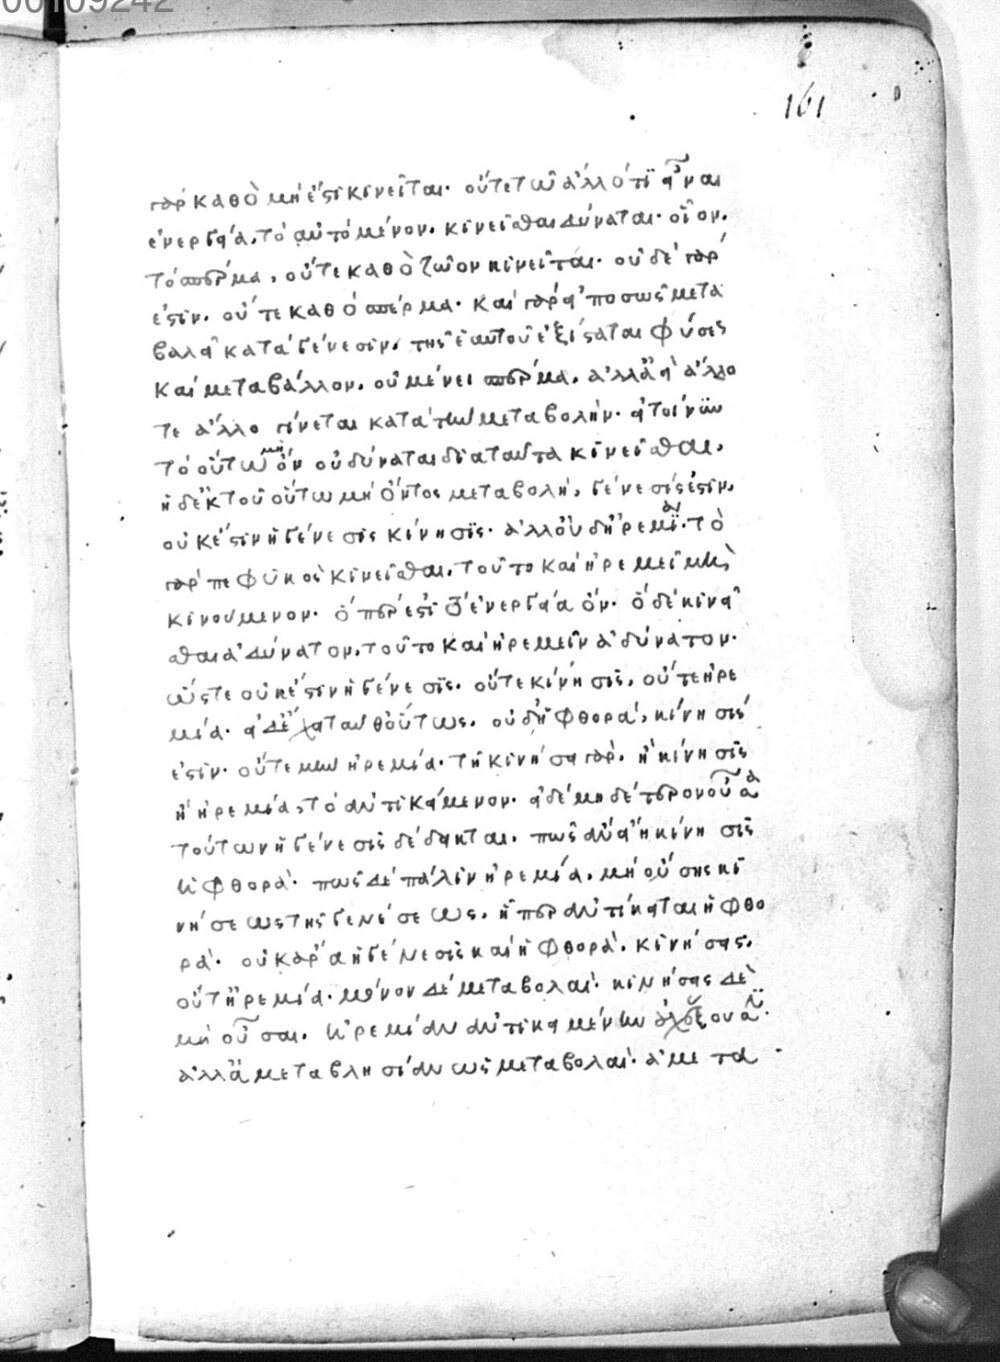 00109242
161
γὰρ καθὸ μὴ ἔστι κινεῖται· οὔτε τῶ ἄλλό τι εἶναι
ἐνεργεία, τὸ αὐτὸ μένον. κινεῖσθαι δύναται· οἷον.
τὸ σπέρμα, οὔτε καθὸ ζῶον κινεῖται· οὐδὲ γὰρ
ἐστὶν. οὔτε καθὸ σπέρμα· καὶ γὰρ εἴ πως μετα
βαλεῖ κατὰ γένεσιν, τῆς ἑαυτοῦ ἐξίσταται φύσεις
καὶ μεταβάλλον, οὐ μένει σπέρμα, ἀλλ' εἰ ἄλλο
τε ἄλλο γίνεται κατὰ τὴν μεταβολήν· εἰ τοίνυν
τὸ οὕτω μὴ ὂν οὐ δύναται διὰ ταῦτα κινεῖσθαι,
ἡ δὲ ἐκ τοῦ οὕτω μὴ ὄντος μεταβολή, γένεσίς ἐστιν,
οὐκ ἔστιν ἡ γένεσις κίνησις· ἀλλ' οὐδ' ἠρεμία· τὸ
γὰρ πεφυκὸς κινεῖσθαι, τοῦτο καὶ ἠρεμεῖ μὴ
κινούμενον· ὅπέρ ἐστι τὸ ἐνεργεία ὄν· ὃ δὲ κινεῖ
σθαι ἀδύνατον, τοῦτο καὶ ἠρεμεῖν ἀδύνατον·
ὥστε οὐκ ἔστιν ἡ γένεσις. οὔτε κίνησις, οὔτε ἠρε
μία· εἰ δὲ ταῦθ' οὕτως, οὐδ' ἡ φθορὰ, κίνησις
ἐστὶν· οὔτε μὴν ἠρεμία· τῆ κινήσει γὰρ, ἢ κίνησις
ἢ ἠρεμία, τὸ ἀντικείμενον· εἰ δὲ μηδέτερον οὖσα
τούτων ἡ γένεσις δέδεικται, πῶς ἂν εἴη κίνησις
ἡ φθορά· πῶς δὲ πάλιν ἠρεμία, μὴ οὔσης κι
νήσεως τῆς γενέσεως, ἧπερ ἀντίκειται ἡ φθο
ρά· οὐκ ἄρα ἡ γένεσις καὶ ἡ φθορὰ, κινήσεις,
οὔτ' ἠρεμία· μόνον δὲ μεταβολαί· κινήσεις δὲ
μὴ οὖσαι, ἠρεμίαν ἀντικειμένην
ἀλλὰ μεταβλησίαν ὡς μεταβολαί· ἀμετα